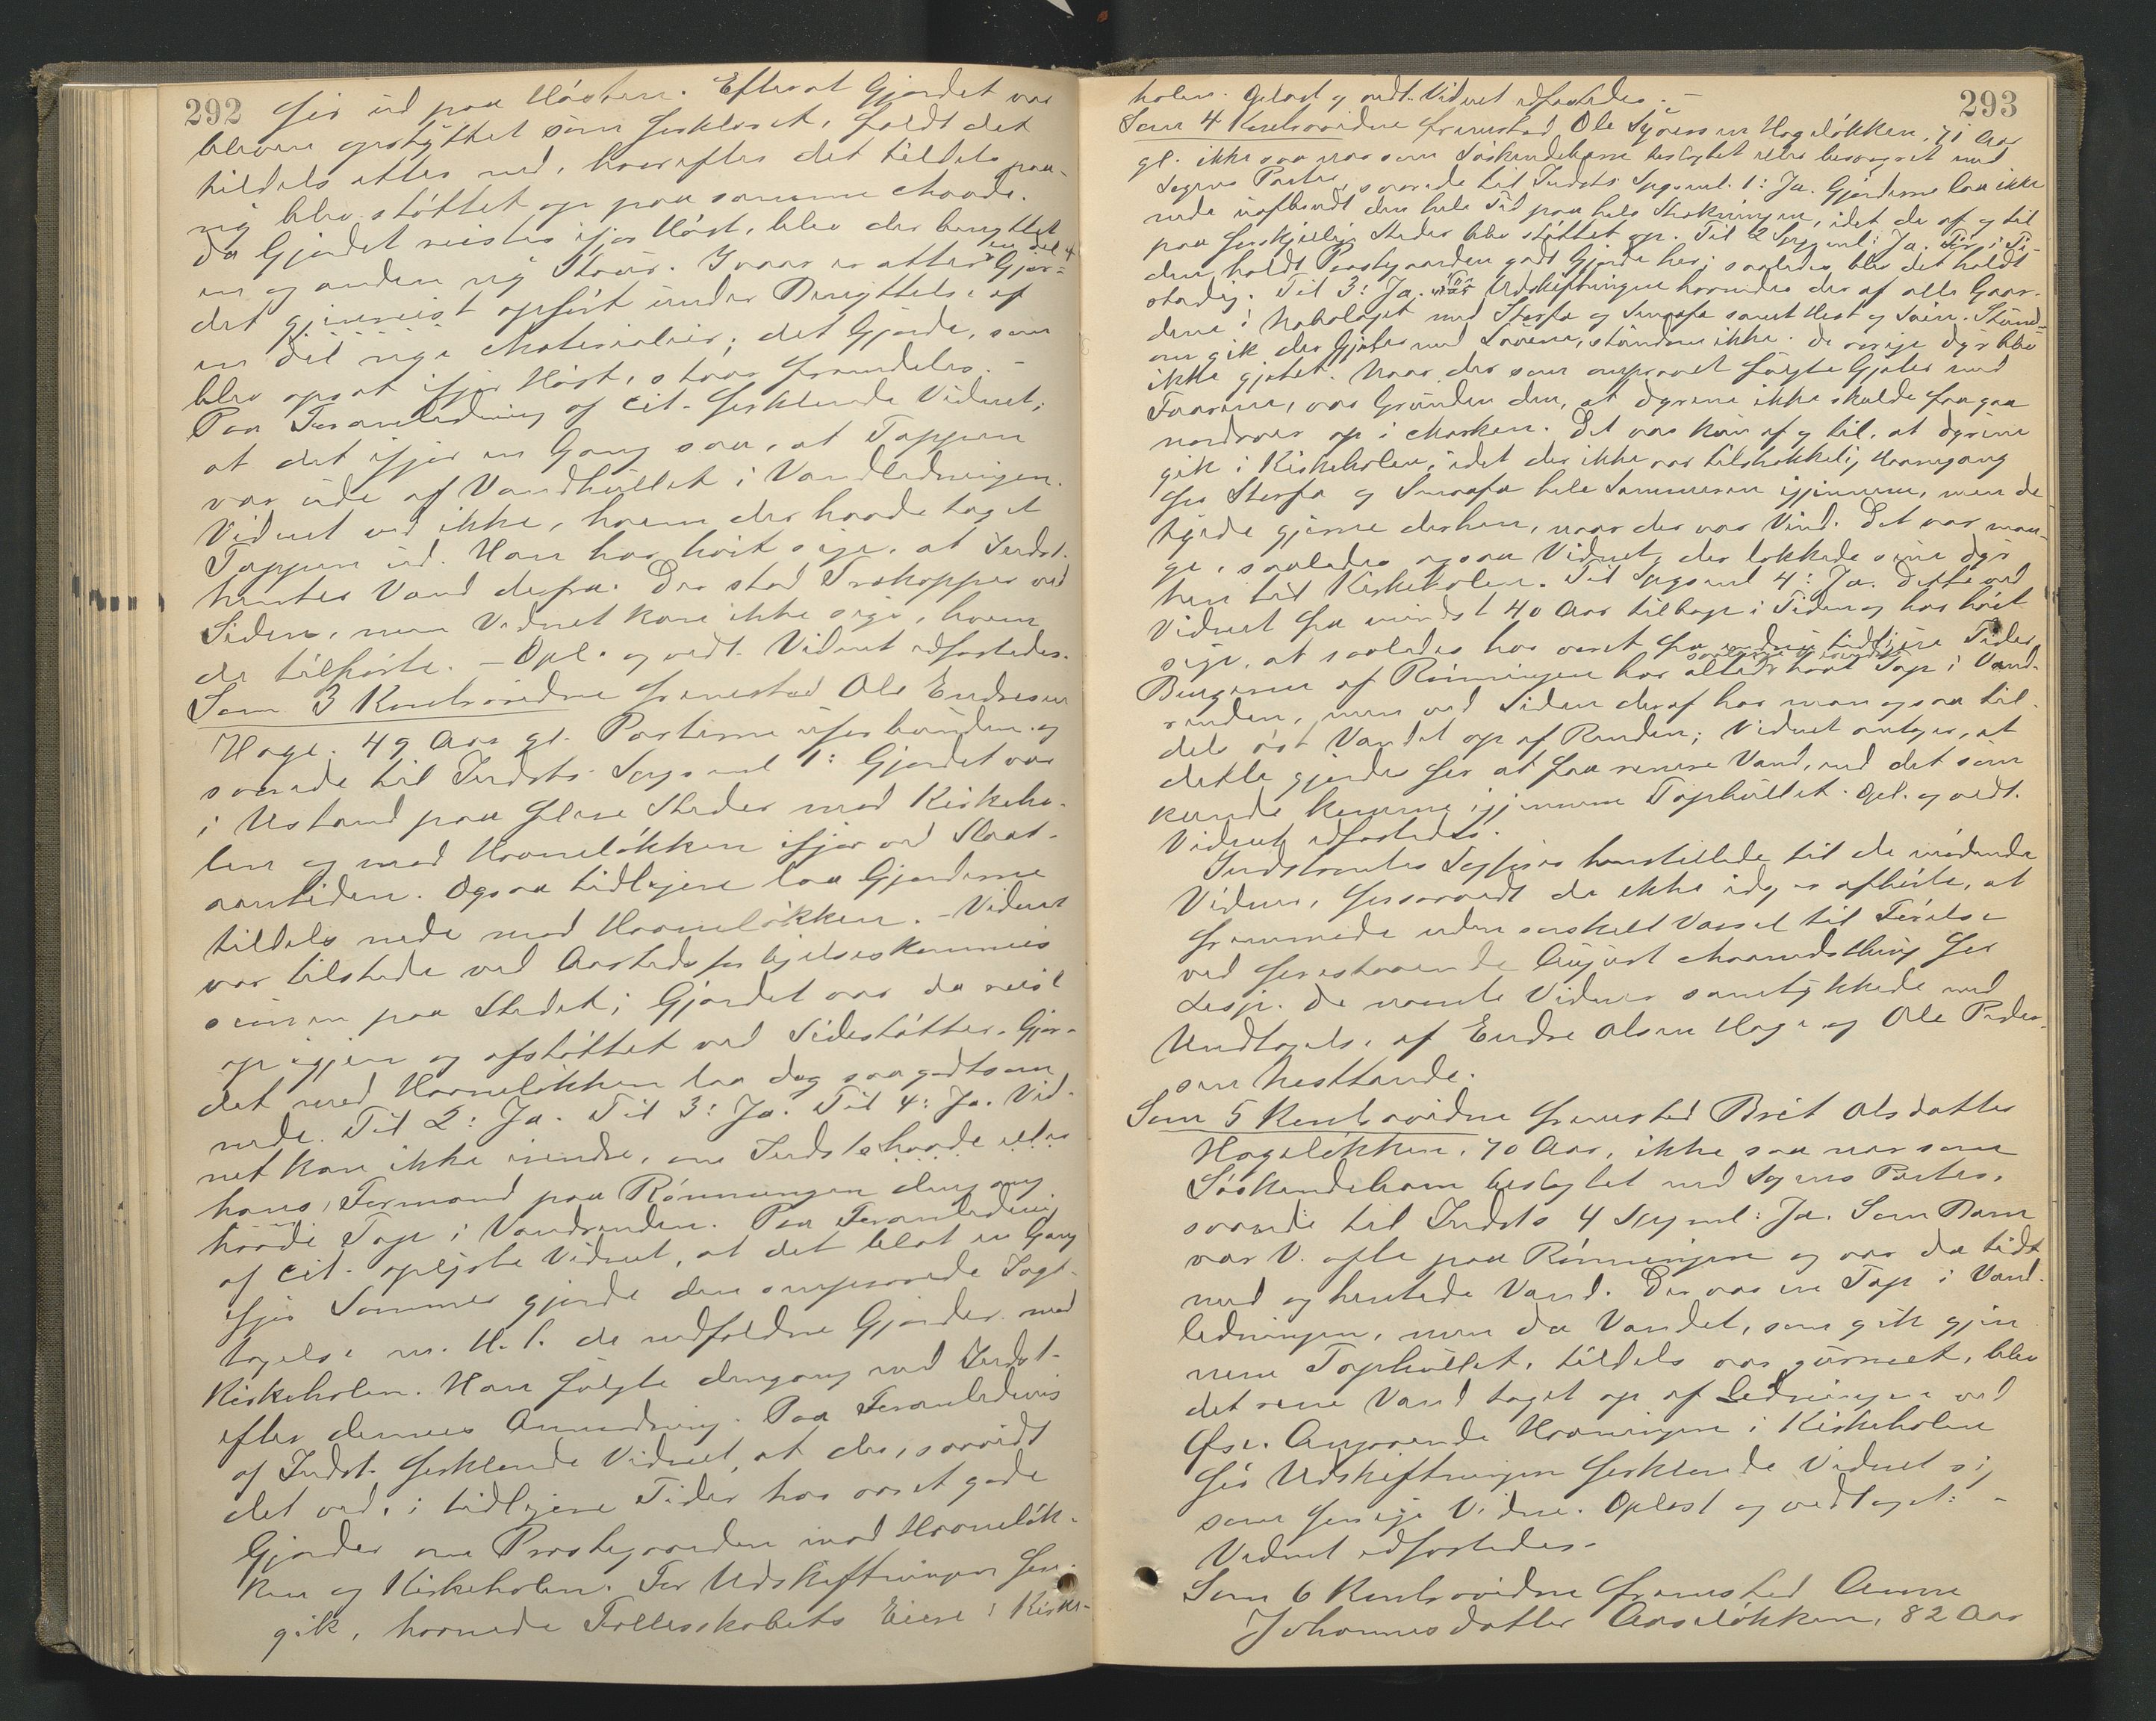 292
før ud paa Høsten. Efterat Gjærdet var
bleven opstyttet som forklaret, faldt det
tildels atter ned, hvorefter det tildels paa-
ny blev støttet op paa samme Maade.
Da Gjærdet reistes ifjor Høst, blev der benyttet
en og anden ny Staur. Ivaar er atter en Del af Gjær-
det gjenreist opført under Benyttelse af
en Del nye Materialier; det Gjærde, som
blev opsat ifjor Høst, staar fremdeles. -
Paa Foranledning af Cit. forklarede Vidnet,
at det ifjor en Gang saa, at Tappen
var ude af Vandhullet i Vandledningen.
Vidnet ved ikke, hvem der havde taget
Tappen ud. Han har hørt sige, at Indst.
hentes Vand derfra. Der stod Trækopper ved
Siden, men Vidnet kan ikke sige, hvem
de tilhørte. - Opl. og vedt. Vidnet afstededes.
Som 3 Kontravidne fremstod Ole Endresen
Hage, 49 Aar gl. Parterne uforbunden og
svarede til Indsts Spgsml 1: Gjærdet var
i Ustand paa flere Steder mod Kirkeho-
len og mod Havneløkken ifjor ved Slaat-
aantiden. Ogsaa tidligere laa Gjærderne
tildels nede mod Havneløkken. - Vidnet
var tilstede ved Aastedsforligelseskommis
sionen paa Stedet; Gjærdet var da reist
op igjen og afstøttet ved Sidestøtter. Gjær-
det mod Havneløkken laa dog saagodtsom
nede. Til 2: Ja. Til 3: Ja. Til 4: Ja. Vid-
net kan ikke mindre, om Indsts havde eller
hans Formand paa Rønningen dengang
havde Tap i Vandrenden. Paa Foranledning
af Cit. oplyste Vidnet, at det blot en Gang
ifjor Sommer gjorde den ompr\ovede Iagt-
tagelse m. H. t. de nedfaldne Gjærder mod
Kirkeholen. Han fulgte dengang med Indst.
efter dennes Anmodning. Paa Foranledning
af Indst. forklarede Vidnet, at der, saavidt
det ved, i tidligere Tider har været gode
Gjærder om Præstegaarden mod Havneløk-
ken og Kirkeholen. Før Udskiftningen fore-
gik, havnede Fællesskabets Eiere i Kirke-
293
holen. Oplæst og vedt. Vidnet afstededes. -
Som 4 Kontravidne fremstod Ole Sjursen Hageløkken, 71 Aar
gl. ikke saa nær som Søskendebarn beslægtet eller besvogret med
Sagens Parter, svarede til Indsts Spgsml. 1: Ja. Gjærderne laa ikke
nede uafbrudt den hele Tid paa hele Strækningen, idet de af og til
paa forskjellige Steder blev støttet op. Til 2 Spgsml: Ja. Før i Ti-
den holdt Præstegaarden godt Gjærde her; saaledes blev det holdt
stadig. Til 3: Ja. Før Udskiftningen havnedes der af alle Gaar-
dene i Nabolaget med Storfæ og Smaafæ samt Hest og Svin. Stund-
om gik der Gjæter med Sauene, stundom ikke. De øvrige Dyr blev
ikke gjætet. Naar der som omprovet fulgte Gjæter med
Faarene, var Grunden den, at Dyrene ikke skulde faa gaa
nordover op i Marken. Det var kun af og til, at Dyrene
gik i Kirkeholen, idet der ikke var tilstrækkelig Havnegang
for Storfæ og Smaafæ hele Sommeren igjennem, men de
tyede gjerne derhen, naar der var Vind. Det var man-
ge, saaledes ogsaa Vidnet, der lokkede sine Dyr
hen til Kirkeholen. Til Spgsml 4: Ja. Dette ved
Vidnet fra mindst 40 Aar tilbage i Tiden og har hørt
sige, at saaledes har været fra endnu tidligere Tider.
Brugerne af Rønningen har altid havt Tap i Vand-
renden, men ved Siden deraf har man ogsaa til-
dels øst Vandet op af Renden; Vidnet antager, at
dette gjordes for at faa renere Vand, end det som
kunde komme igjennem Taphullet. Opl. og vedt.
Vidnet afstededes.
Indstævntes Sagfører henstillede til de mødende
Vidner, forsaavidt de ikke idag er afhørte, at
fremmøde uden særskilt Varsel til Førelse
ved forestaaende August Maanedsthing for
Lesja. De nævnte Vidner samtykkede med
Undtagelse af Endre Olsen Hage og Ole Peder-
sen Nesttande.
Som 5 Kontravidne fremstod Brit Olsdatter
Hageløkken, 70 Aar, ikke saa nær som
Søskendebarn beslægtet med Sagens Parter,
svarede til Indsts 4 Spgsml: Ja. Som Barn
var V. ofte paa Rønningen og var da tidt
med og hentede Vand. Der var en Tap i Vand-
ledningen, men da Vandet, som gik gjen
nem Taphullet, tildels var gurmet, blev
det rene Vand taget op af Ledningen ved
Øse. Angaaende Havningen i Kirkeholen
før Udskiftningen forklarede Vidnet sig
som forrige Vidne. Oplæst og vedtaget: -
Vidnet afstededes.
Som 6 Kontravidne fremstod Anne
Johannesdatter Aaseløkken, 82 Aar